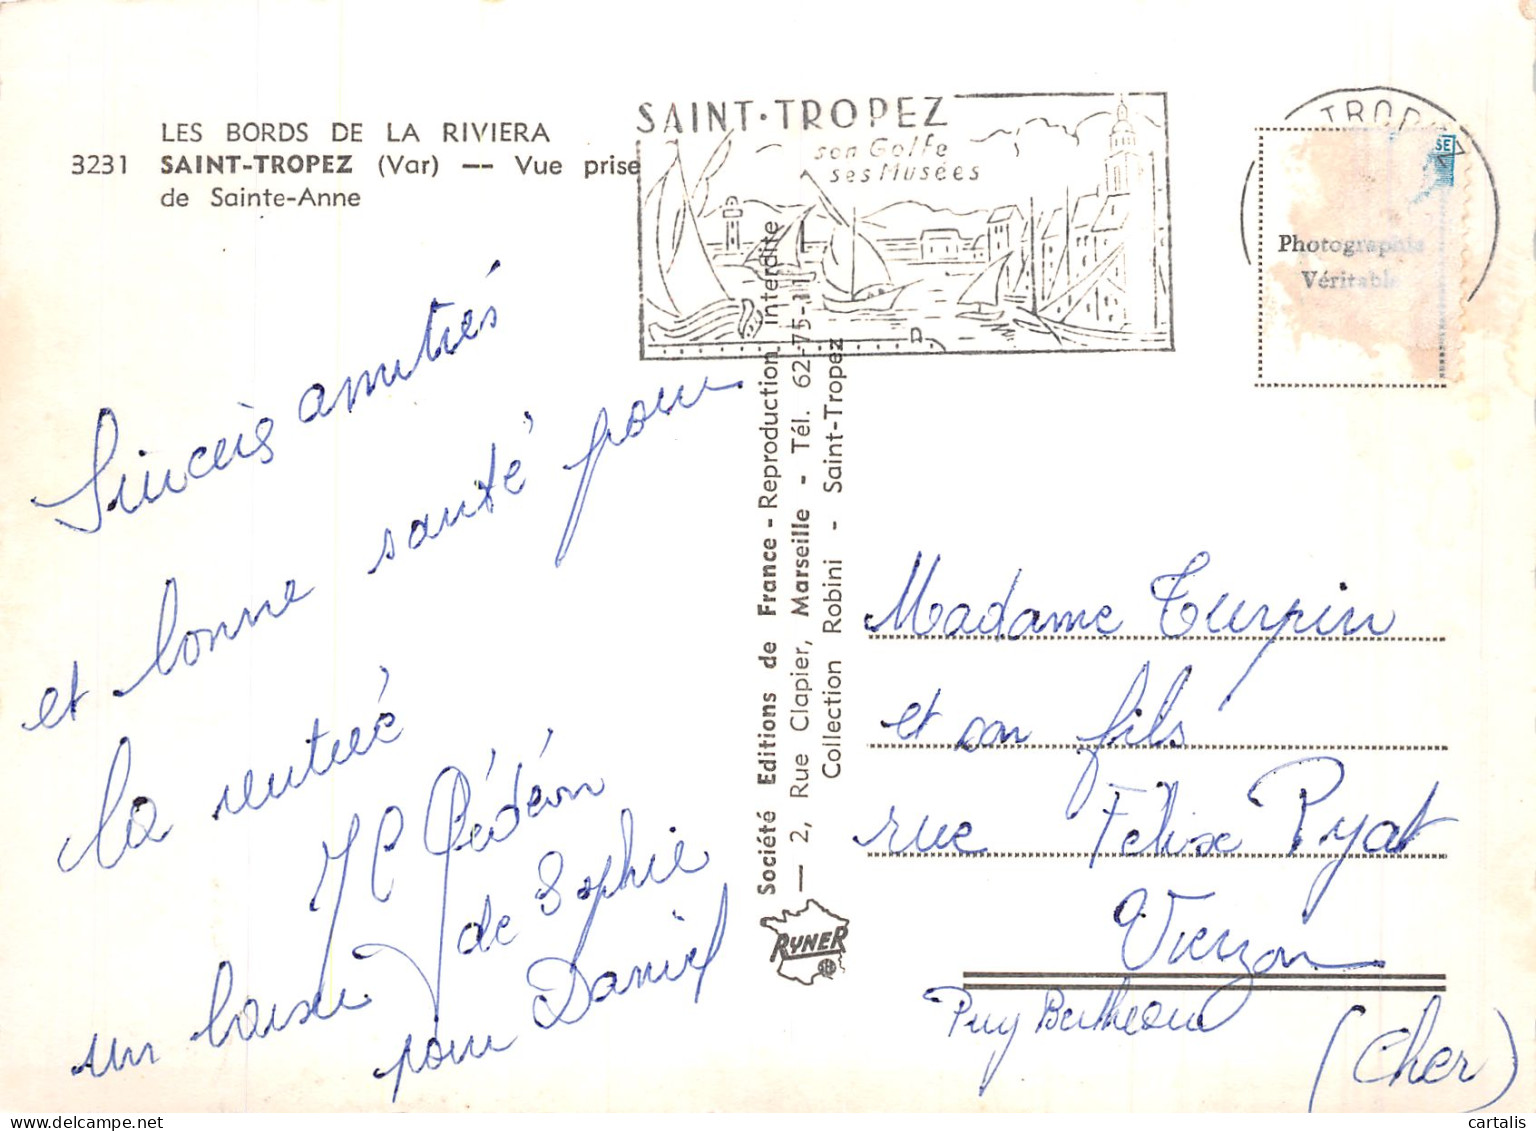 LES BORDS DE LA RIVIERA
3231 SAINT-TROPEZ (Var) -- Vue prise
de Sainte-Anne
SAINT·TROPEZ
son Golfe
ses Musées
TROP
SE
Photographie
Véritable
Sincères amitiés
et bonne santé pour
la rentrée
Gédéon
un baiser de Sophie
pour Daniel
Société Editions de France - Reproduction interdite
— 2, Rue Clapier, Marseille - Tél. 62-75-11
Collection Robini - Saint-Tropez
RYNER
Madame Turpin
et son fils
rue Félix Pyat
Vierzon
Puy Bertheau
(Cher)
cartalis